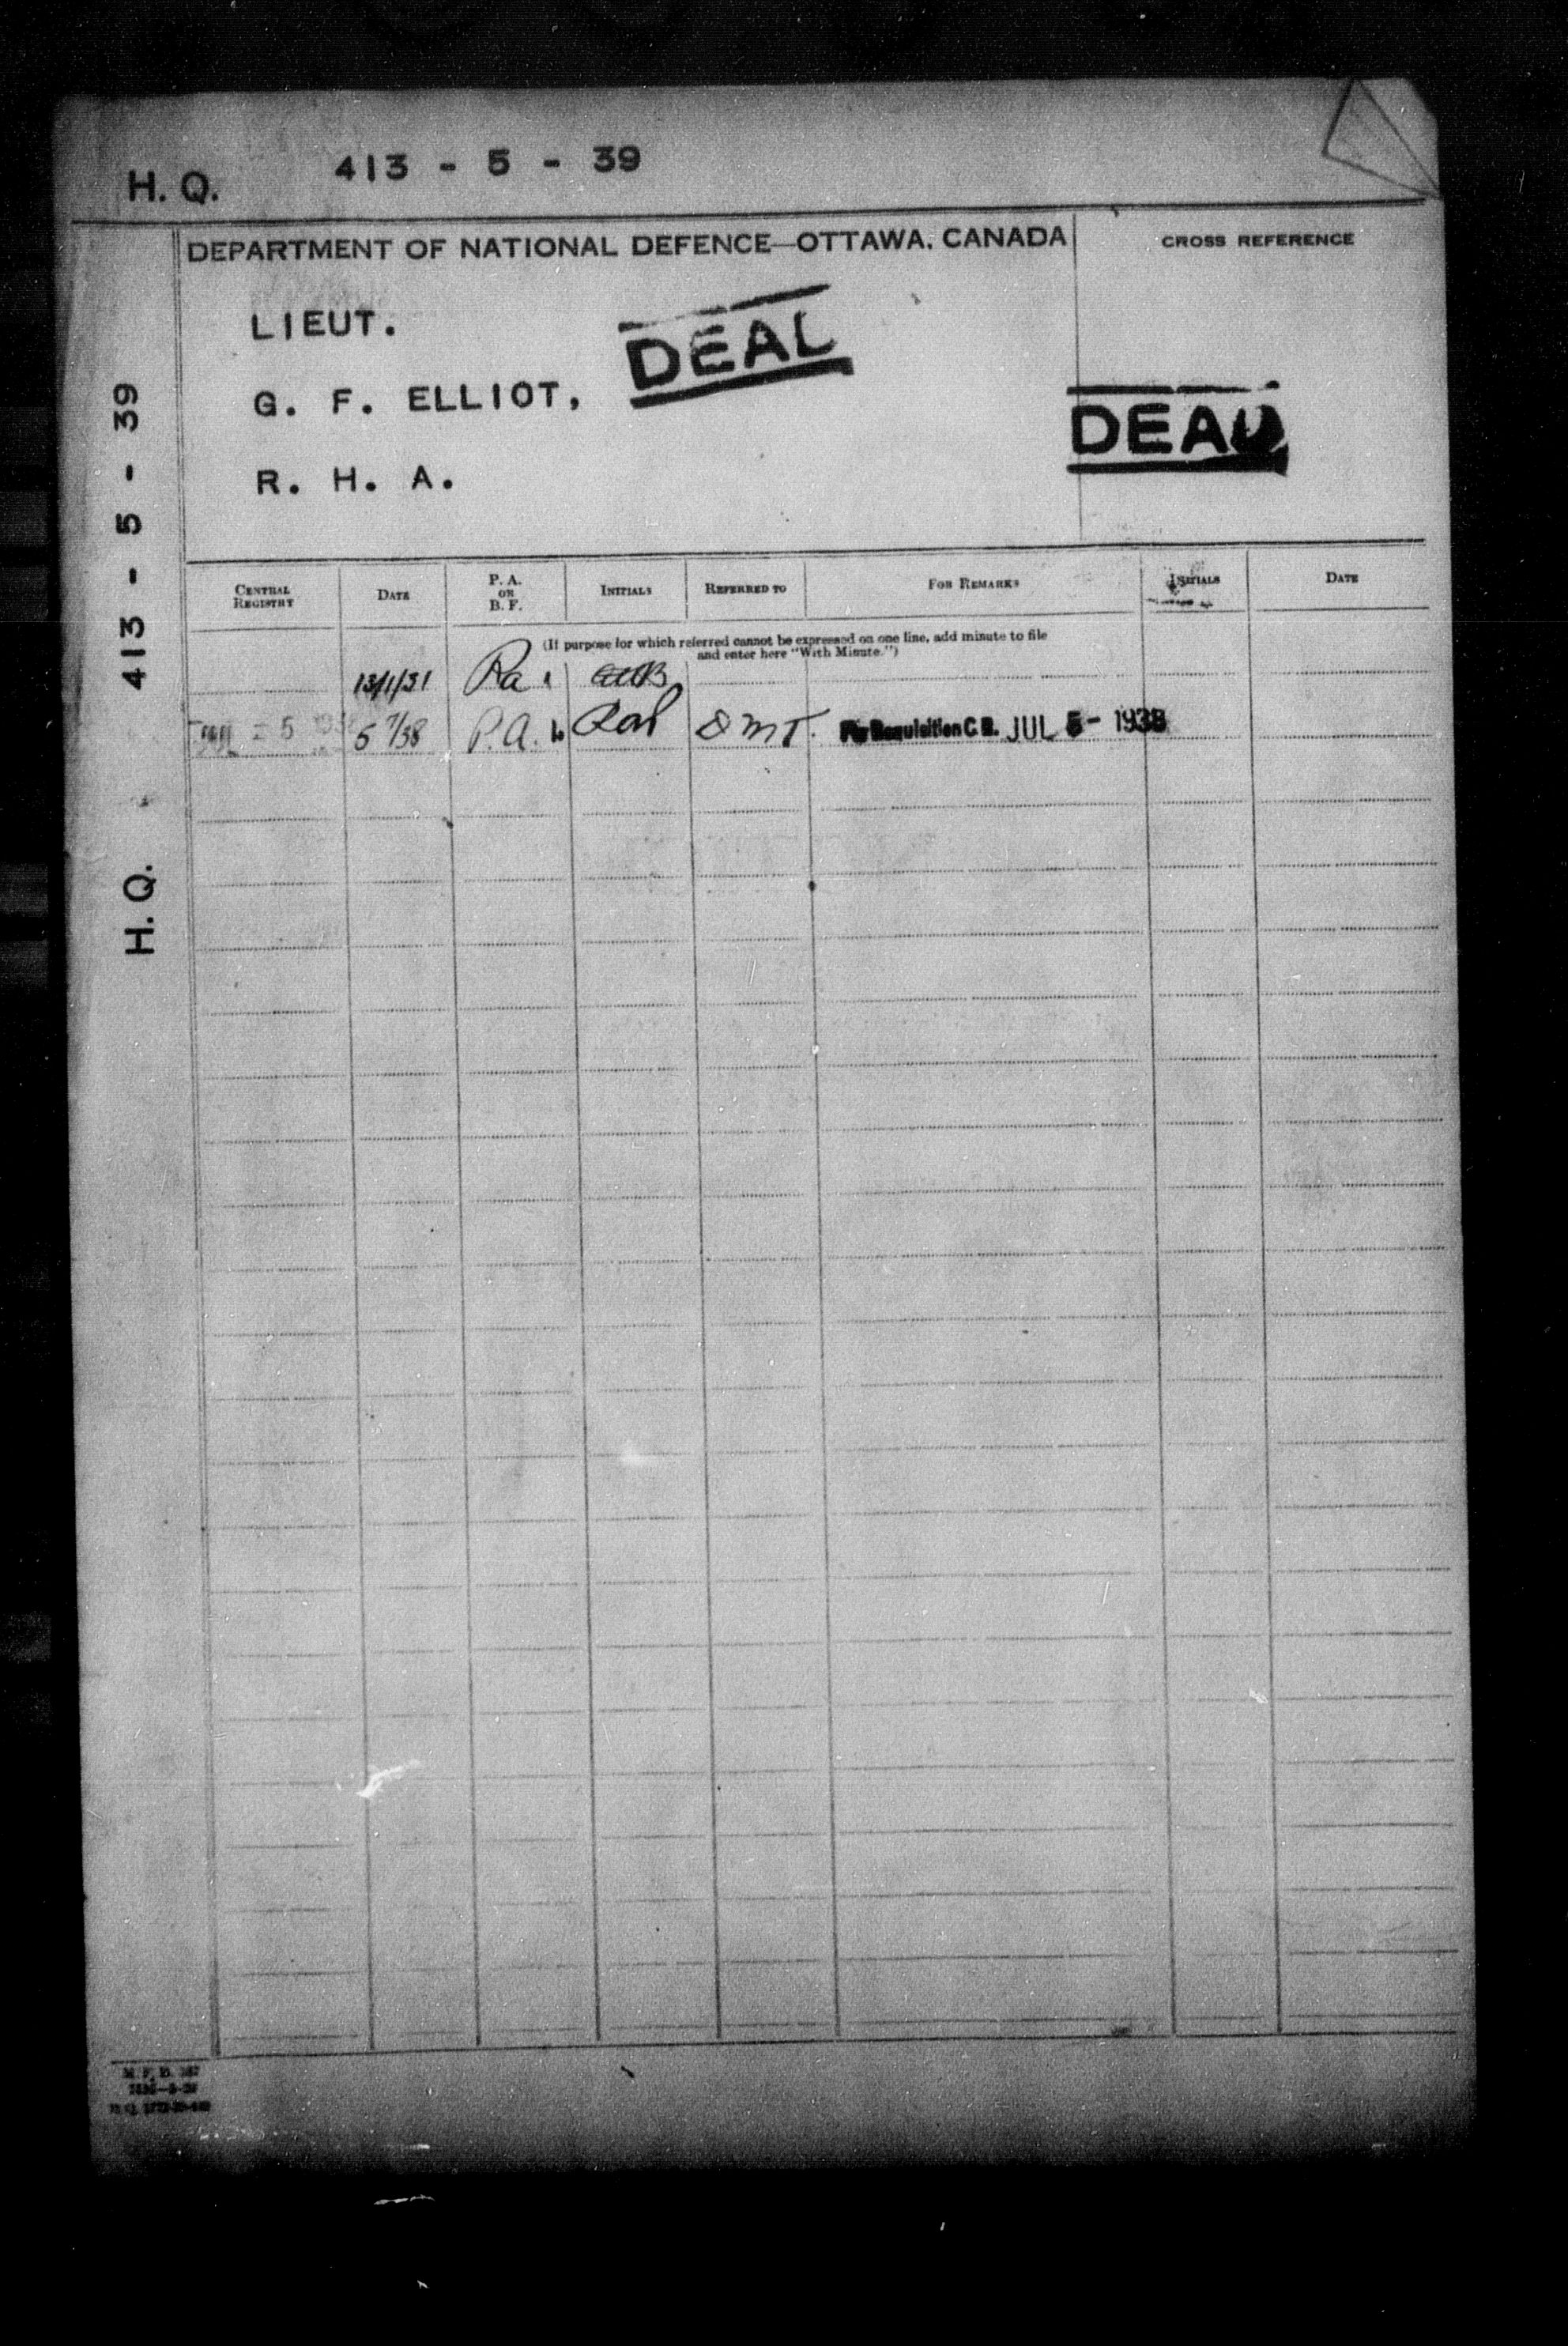 H. Q. 413 - 5 - 39
DEPARTMENT OF NATIONAL DEFENCE—OTTAWA, CANADA
CROSS REFERENCE
LIEUT.
DEAD
G. F. ELLIOT,
DEAD
R. H. A.
H. Q. 413 - 5 - 39
CENTRAL REGISTRY
DATE
P. A. OR B. F.
INITIALS
REFERRED TO
FOR REMARKS
INITIALS
DATE
(If purpose for which referred cannot be expressed on one line, add minute to file
and enter here "With Minute.")
13/1/31 Pa.
5 7/38 P.A. DMT. For Requisition C.R. JUL 5 - 1938